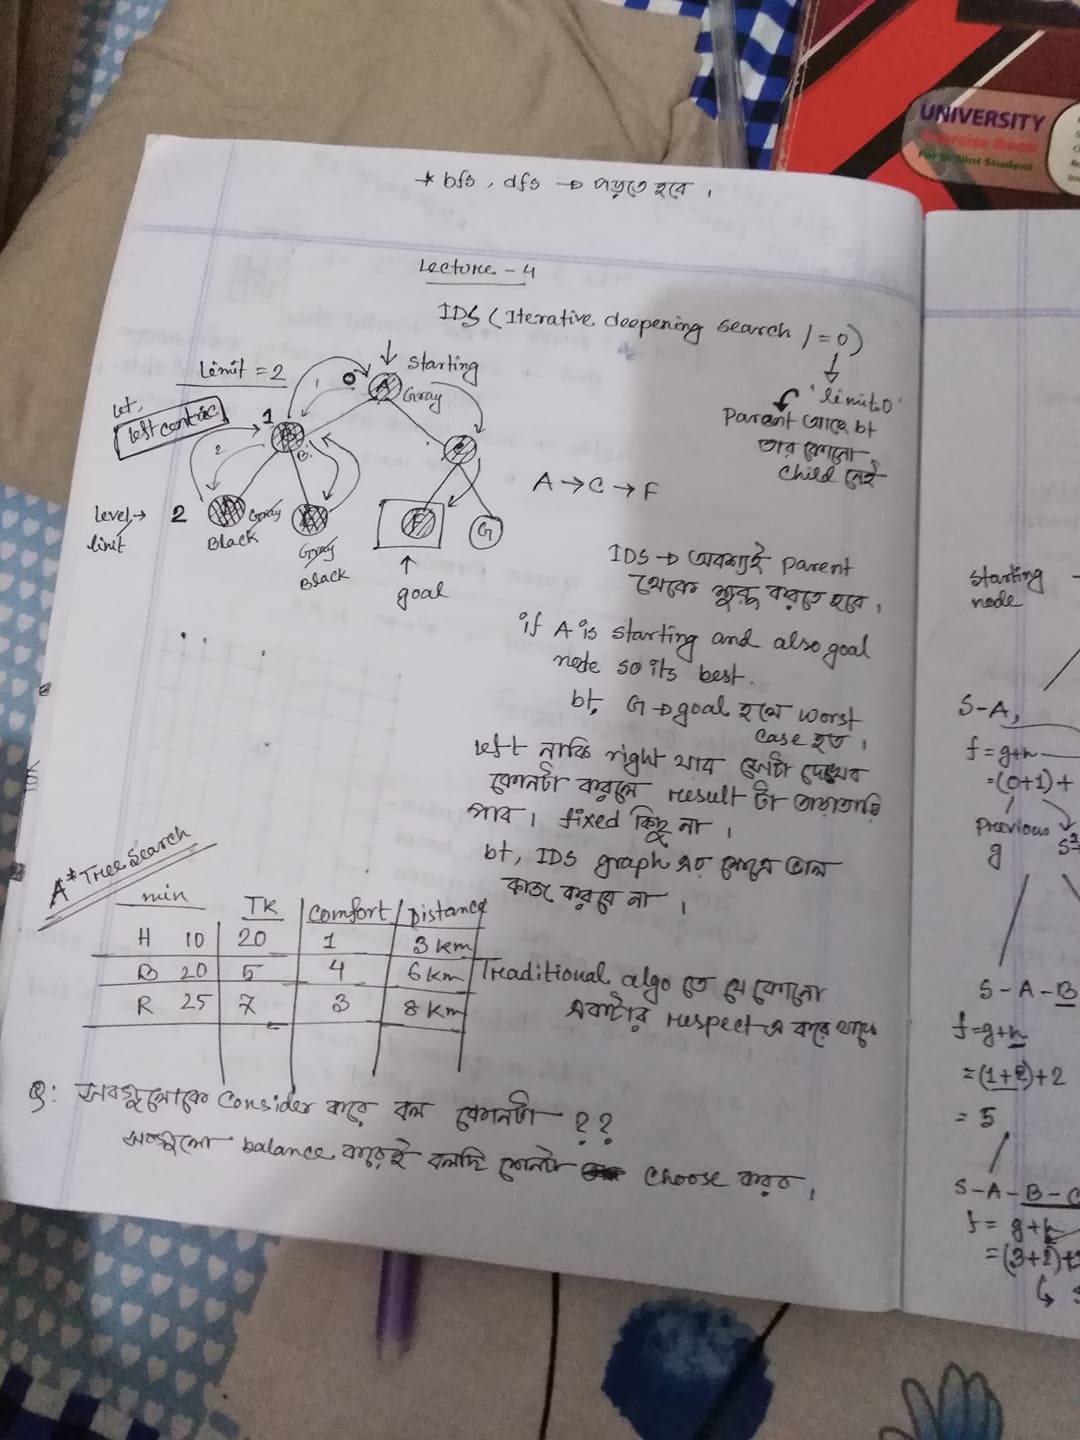 UNIVERSITY
Exercise Book
For Brilliant Student
* bfs, dfs → পড়তে হবে।
Lecture - 4
IDS (Iterative deepening search l = 0)
'limit=0'
Parent আছে bt
তার কোনো
child নেই
Limit = 2
Let,
left centric
Starting
0
A
Gray
1
1
B
B
2
C
level →
limit
2
Gray
Black
Gray
Black
F
G
goal
A → C → F
IDS → অবশ্যই parent
থেকে শুরু করতে হবে।
if A is starting and also goal
node so its best.
bt, G → goal হলে worst
case হত।
left নাকি right যাব সেটা দেখব
কোনটা করলে result টা তাড়াতাড়ি
পাব। fixed কিছু না।
bt, IDS graph এর ক্ষেত্রে ভাল
কাজ করবে না।
A* Tree Search
min TK Comfort Distance
H 10 20 1 3 km
B 20 5 4 6 km
R 25 7 3 8 km
Traditional algo তে যে কোনো
একটার respect এ করে থাকে
Q: সবগুলোকে Consider করে বল কোনটা ??
সবগুলো balance করেই বলছি কোনটা choose করব।
Starting
node
S-A,
f = g+h
= (0+1) +
Previous
g
S - A - B
f = g+h
= (1+2)+2
= 5
S-A-B-C
f = g+h
= (3+2)+